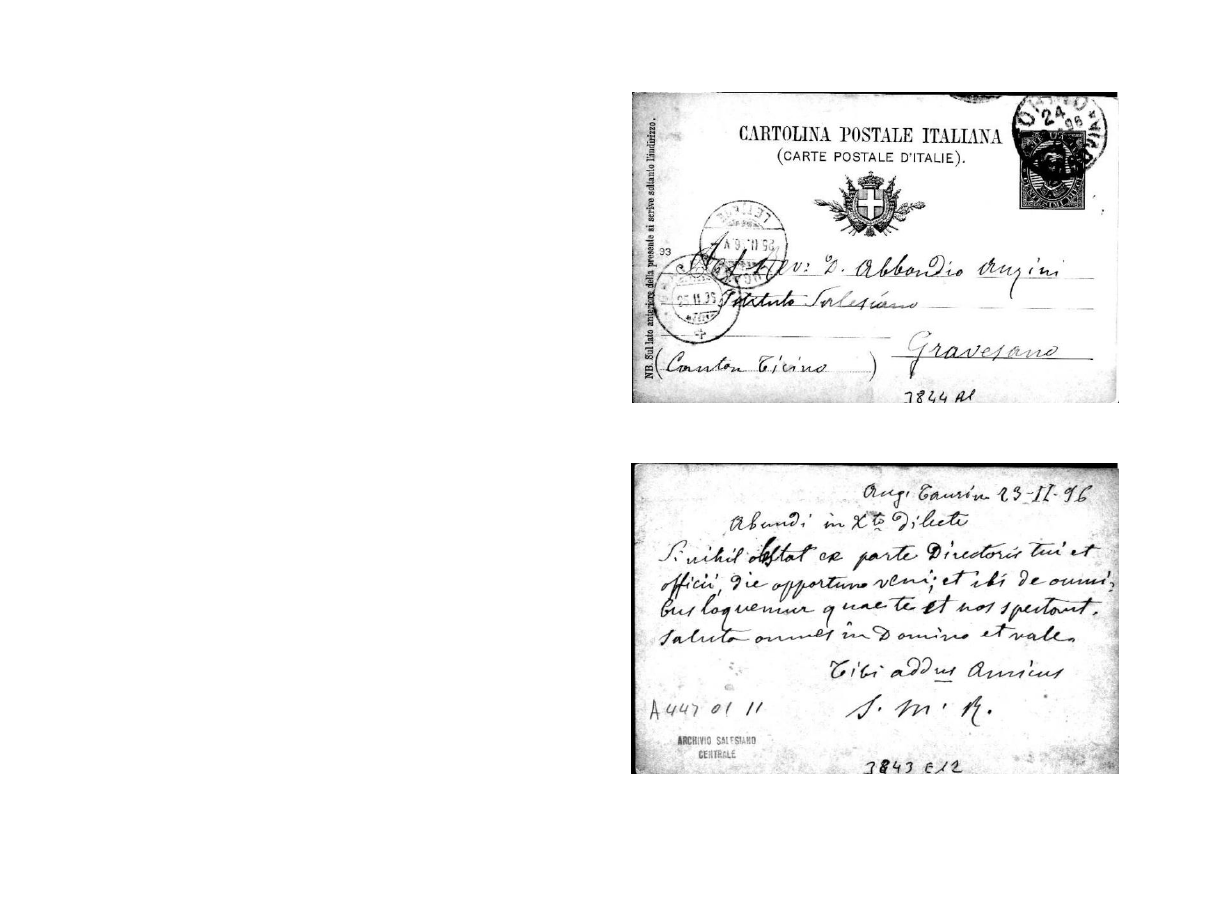 CARTOLINA POSTALE ITALIANA
(CARTE POSTALE D'ITALIE).
NB. Sul lato anteriore della presente si scrive soltanto l'indirizzo.
TORINO
24
96
93
25.II.96
25.II.96
Al Rev: D. Abbondio Anzini
Istituto Salesiano
Gravesano
(Canton Ticino)
3844 A1
Aug. Taurin 23-II-96
Abundi in Xto Dilecte
Si nihil obstat ex parte Directoris tui et
officii, die opportuno veni; et ibi de omni-
bus loquemur quae te et nos spectant.
Saluta omnes in Domino et vale.
Tibi addus Amicus
S. M. R.
A 447 01 11
ARCHIVIO SALESIANO
CENTRALE
3843 E12